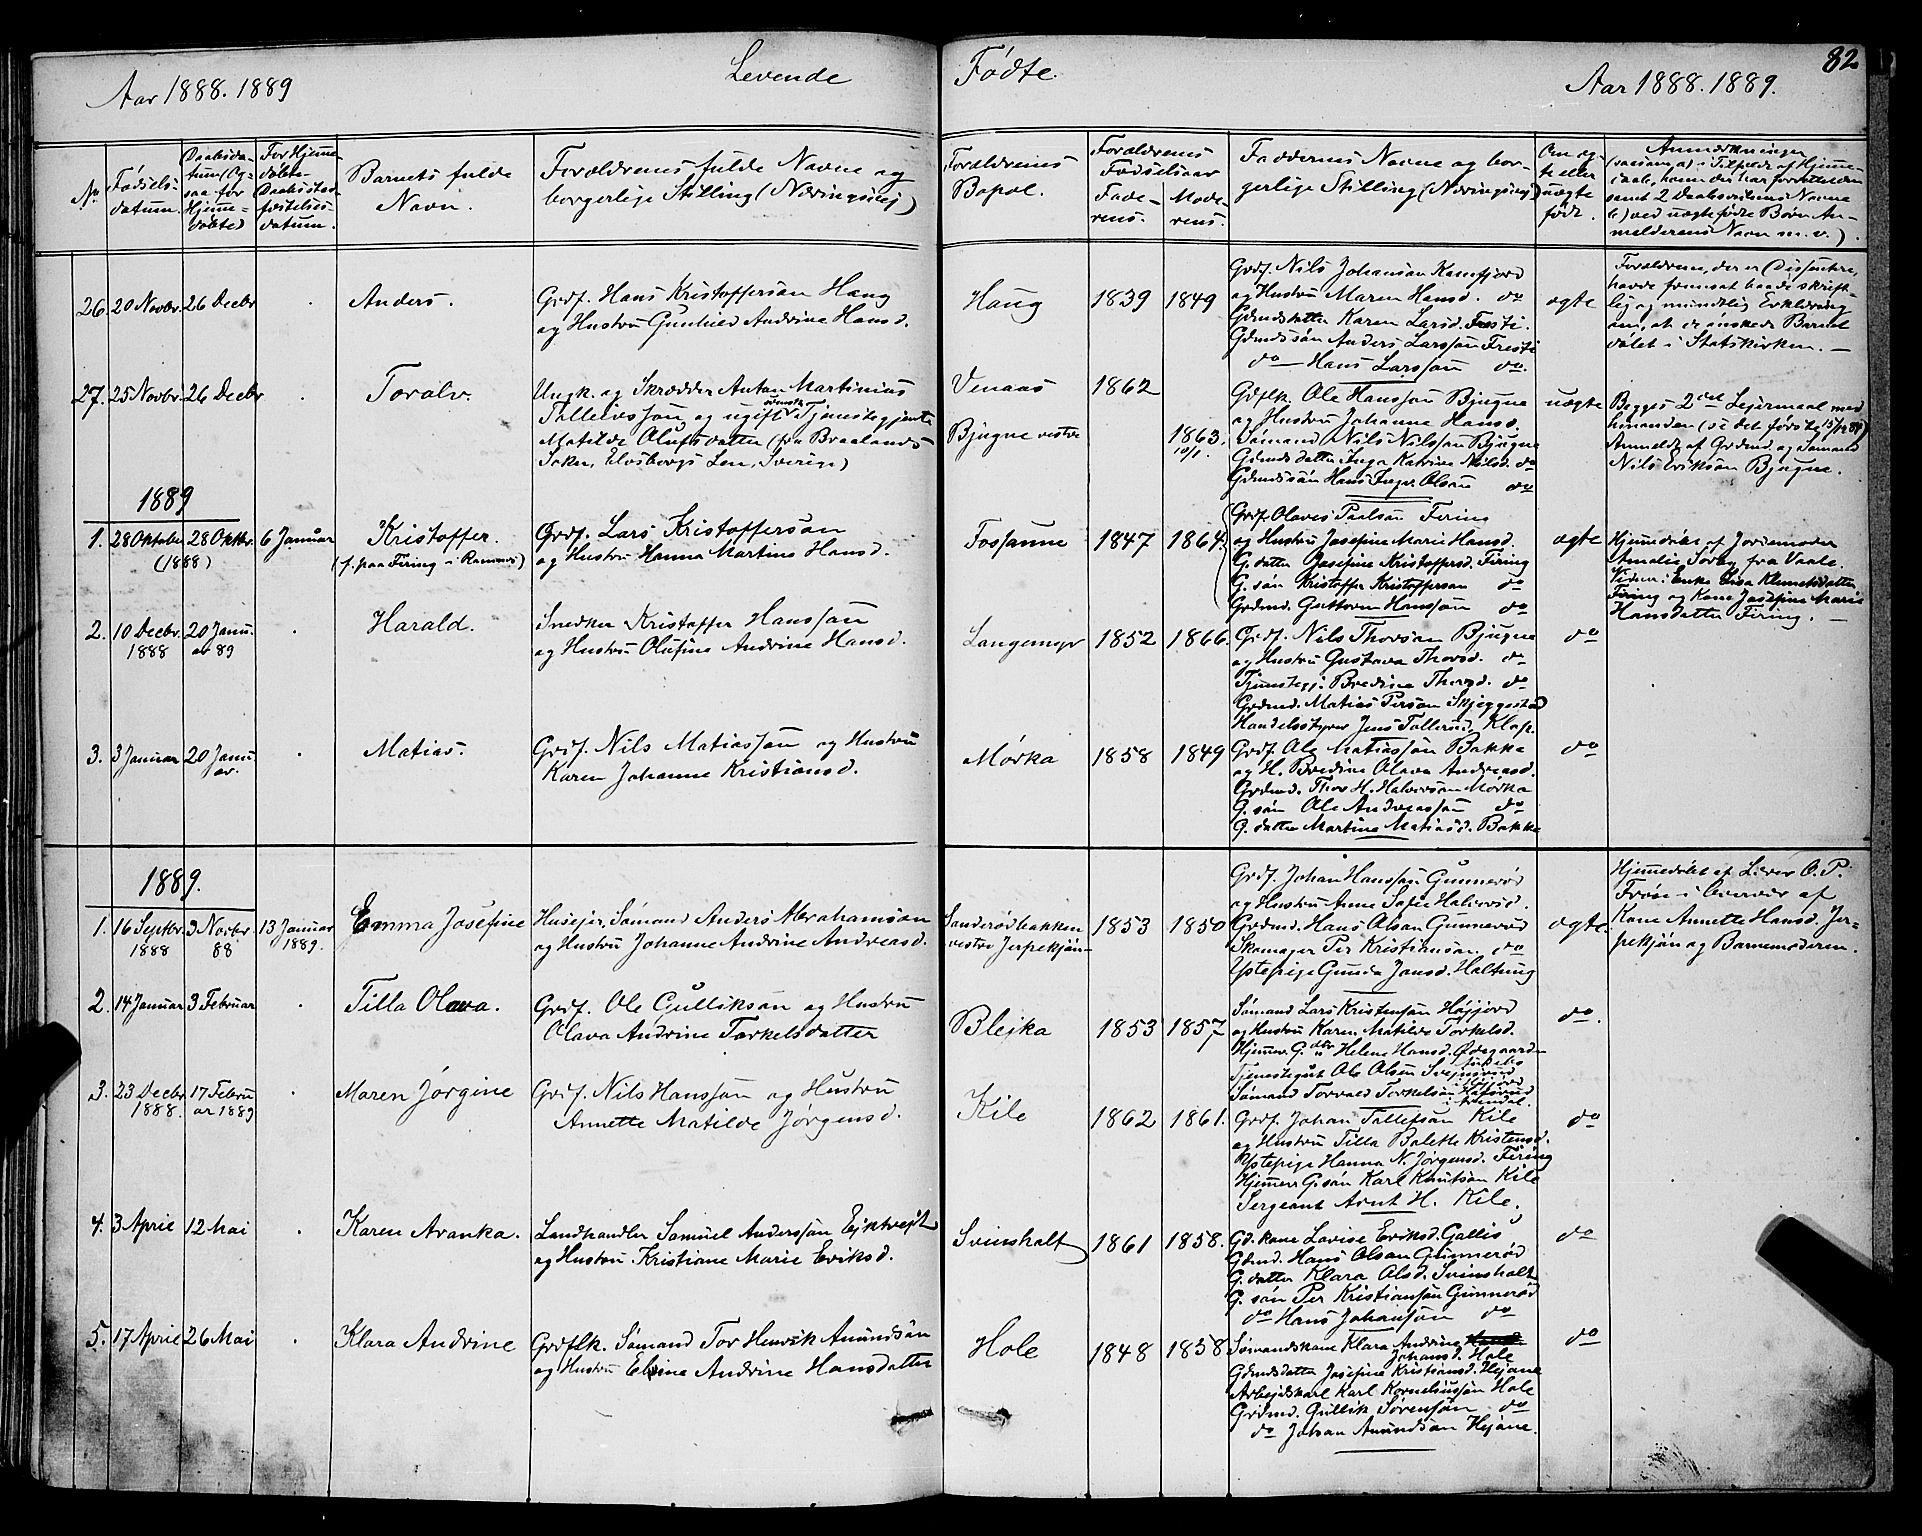 82
Aar 1888. 1889
Levende
Fødte.
Aar 1888. 1889.
No
Fødsels-
datum.
Daabsda-
tum (Og-
saa for
Hjemme-
døbte)
For Hjemme-
døbte
Daabsstad-
fæstelses-
datum.
Barnets fulde
Navn.
Forældrenes fulde Navne og
borgerlige Stilling (Næringsvej)
Forældrenes
Bopæl.
Forældrenes
Fødselsaar
Fade-
rens.
Mode-
rens.
Faddernes Navne og bor-
gerlige Stilling (Næringsvej)
Om æg-
te eller
uægte
født.
Anmærkninger
samt 2 Daabsvidners Navne
b) ved uægtefødte Børn An-
melderens Navn m. v.)
26. 20 Novbr. 26 Decbr
Anders.
Grdf. Hans Kristoffersøn Haug
og Hustru Gunhild Andrine Hansd.
Haug 1839 1849
Grdf. Nils Johansøn Kamfjord
og Hustru Maren Hansd. do
Gdmdsdatter Karen Larsd. Fresti.
Gdmdssøn Anders Larssøn Fresti
do — Hans Larssøn do.
ægte
Forældrene, der er Dissentere,
havde fremsat baade skrift-
lig og mundlig Erklæring
om, at de ønskede Barnet
døbt i Statskirken. —
27. 25 Novbr. 26 Decbr
Toralv.
Ungk. og Skrædder Anton Martinius
Tallefssøn og ugift svensk Tjenestepige
Matilde Olufsdatter (fra Braalanda
Sokn, Elvsborgs Len, Sverige)
Venaas 1862
Bjugne vestre 1863.
10/1.
Gdflk. Ole Hanssøn Bjugne
og Hustru Johanne Hansd.
Sømand Nils Nilssøn Bjugne
Gdmdsdatter Inga Katrine Nilsd. do
Gdmdssøn Hans Olsøn do
uægte
Begges 2det Lejermaal med
hinanden (se det første)
Anmeldt af Grdmd. og Sømand
Nils Eriksøn Bjugne.
1889
1. 28 Oktober 28 Oktbr. 6 Januar
(1888)
Kristoffer.
(f. paa Firing i Ramnes)
Grdf. Lars Kristoffersøn
og Hustru Hanna Martine Hansd.
Fossanne 1847 1864.
Grdf. Olaves Paulsøn Firing
og Hustru Josefine Marie Hansd.
G.datter Josefine Kristoffersd. Firing
G.søn Kristoffer Kristoffersøn do
Grdmd. Guttorm Hanssøn do
ægte
Hjemmedøbt af Jordemoder
Amalie Sørby fra Vaale.
Vidner: Enke Lisa Klemetsdatter
Firing og Kone Josefine Marie
Hansdatter Firing. —
2. 10 Decbr. 20 Janu-
1888 ar 89
Harald.
Snedker Kristoffer Hanssøn
og Hustru Olufine Andrine Hansd.
Langemyr 1852 1866.
Grdf. Nils Thorsøn Bjugne
og Hustru Gustava Thorsd. do
Tjenestepi. Bredine Thorsd. do
Grdmd. Matias Persøn Skjeggestad
Handelsstyrer Jens Tollefsrud, Klop.
do
3. 3 Januar 20 Janu-
ar.
Matias.
Grdf. Nils Matiassøn og Hustru
Karen Johanne Kristiansd.
Mørka 1858 1849
Grdf. Ole Matiassøn Bakke
og H. Bredine Olava Andreasd.
Grdmd. Thor H. Halvorsøn Mørka
G.søn Ole Andreassøn do
G.datter Martine Matiasd. Bakke
do
1889.
1. 16 Septbr 3 Novbr. 13 Januar
1888 88 1889.
Emma Josefine
Husejer, Sømand Anders Abrahamsøn
og Hustru Johanne Andrine Andreasd.
Sanderødbakken
vestre Jerpekjøn 1853 1850
Grdf. Johan Hanssøn Gunnerød
og Hustru Anne Sofie Halvorsd.
Grdmd. Hans Olsøn Gunnerød
Skomager Per Kristiansøn do
Ystepige Gunda Jansd. Haltung
ægte.
Hjemmedøbt af Lærer O. P.
Frøse i Overvær af
Kone Annette Hansd. Jer-
pekjøn og Barnemoderen.
2. 14 Januar 3 Februar
Tilla Olava.
Grdf. Ole Gulliksøn og Hustru
Olava Andrine Torkelsdatter
Blejka 1853 1857
Sømand Lars Kristensøn Højjord
og Hustru Karen Matilde Torkelsd.
Hjemmev. G. dtr Helene Hansd. Ødegaarden
Tjenestegut Ole Olsøn
Sømand Torvald Torkelsøn
do.
3. 23 Decbr 17 Febru
1888. ar 1889
Maren Jørgine
Grdf. Nils Hanssøn og Hustru
Annette Matilde Jørgensd.
Kile 1862 1861.
Grdf. Johan Tollefsøn Kile
og Hustru Tilla Bolette Kristensd.
Ystepige Hanna N. Jørgensd. Firing
Hjemmev G.søn Karl Knutsøn Kile
Sergeant Arnt H. Kile.
do
4. 3 April 12 Mai
Karen Aranka.
Landhandler Samuel Anderssøn Ejktvejt
og Hustru Kristiane Marie Eriksd.
Svinsholt 1861 1858.
Gd.kone Lovise Eriksd. Gallis
Gdmd. Hans Olsøn Gunnerød
G.datter Klara Olsd. Svinsholt
G.søn Per Kristiansøn Gunnerød
do Hans Johansøn do
do
5. 17 April 26 Mai
Klara Andrine
Grdflk. Sømand Tor Henrik Amundsøn
og Hustru Elvine Andrine Hansdatter
Hole 1848 1858
Sømandskone Klara Andrine
Johansd. Hole
Gdmdsdatter Josefine Kristiansd. Hejane
Arbejdskarl Karl Korneliussøn Hole
Grdmd. Gullik Sørensøn do
do Johan Amundsøn Hejane.
do